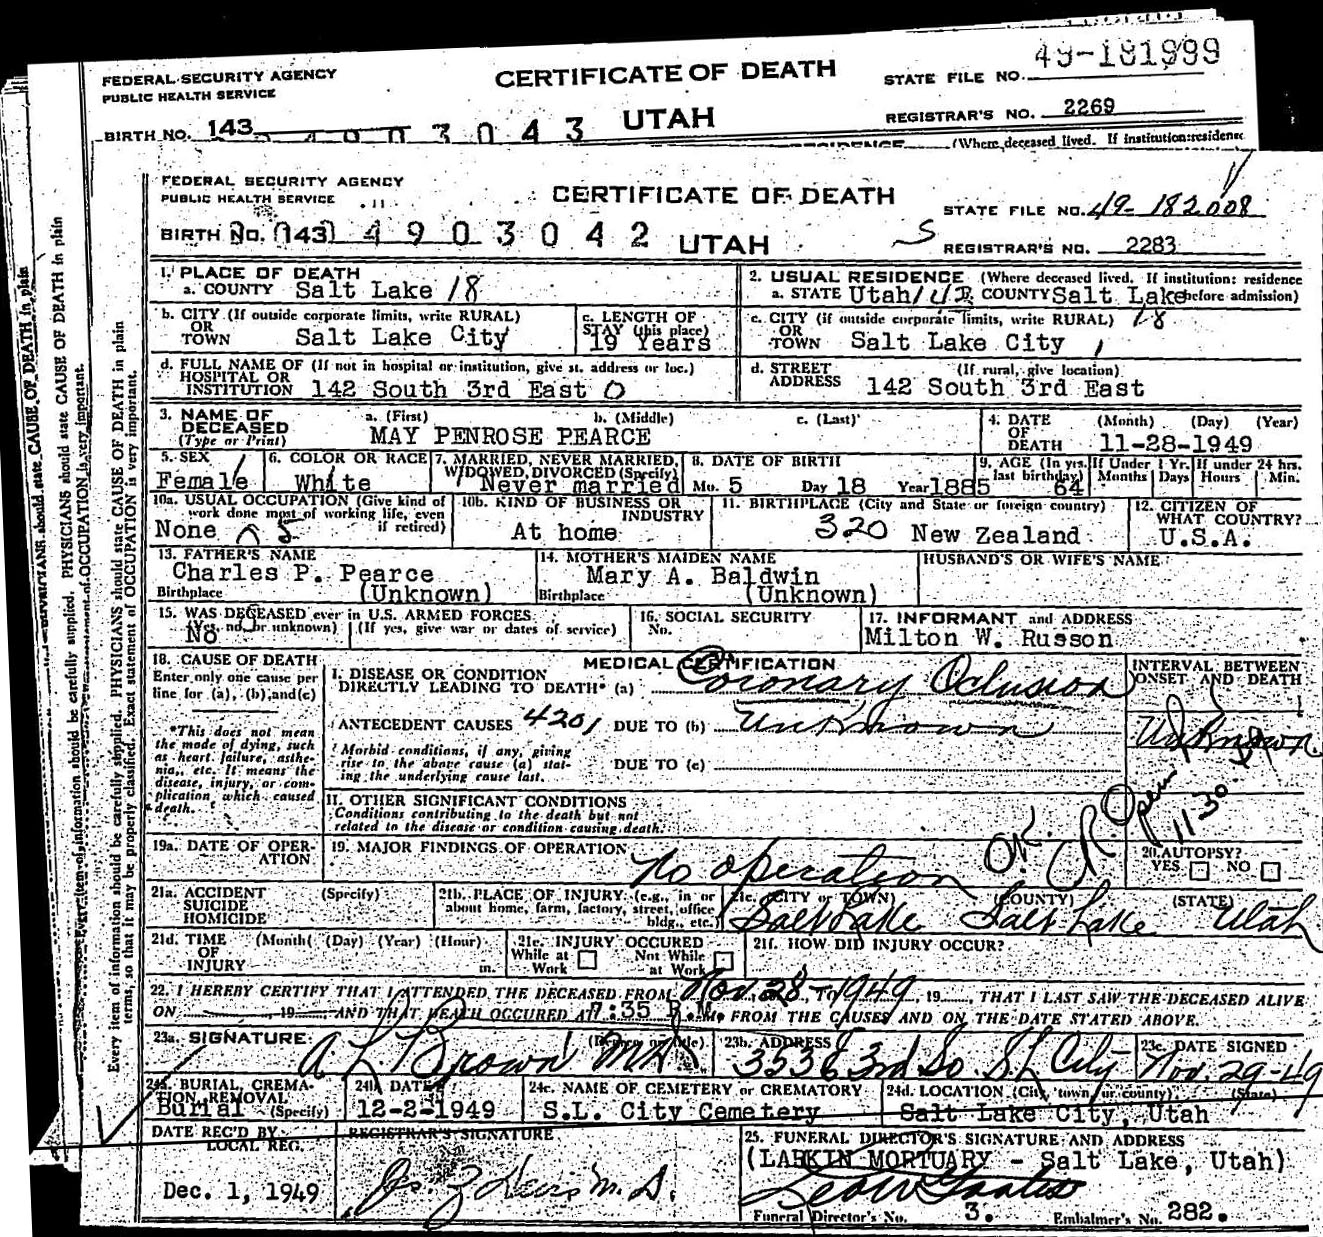 49-181999
FEDERAL SECURITY AGENCY
PUBLIC HEALTH SERVICE
CERTIFICATE OF DEATH
STATE FILE NO.
UTAH
REGISTRAR'S NO. 2269
BIRTH NO. 143
4903043
(Where deceased lived. If institution: residence
FEDERAL SECURITY AGENCY
PUBLIC HEALTH SERVICE
CERTIFICATE OF DEATH
STATE FILE NO. 49-182008
BIRTH NO. 143 4903042 UTAH S REGISTRAR'S NO. 2283
1. PLACE OF DEATH
a. COUNTY Salt Lake 18
2. USUAL RESIDENCE (Where deceased lived. If institution: residence
a. STATE Utah COUNTY Salt Lake before admission)
b. CITY (If outside corporate limits, write RURAL)
OR
TOWN Salt Lake City
c. LENGTH OF
STAY (this place)
19 Years
c. CITY (if outside corporate limits, write RURAL) 18
OR
TOWN Salt Lake City
d. FULL NAME OF (If not in hospital or institution, give st. address or loc.)
HOSPITAL OR
INSTITUTION 142 South 3rd East 0
d. STREET (If rural, give location)
ADDRESS 142 South 3rd East
3. NAME OF a. (First) b. (Middle) c. (Last)
DECEASED
(Type or Print) MAY PENROSE PEARCE
4. DATE (Month) (Day) (Year)
OF
DEATH 11-28-1949
5. SEX
Female
6. COLOR OR RACE
White
7. MARRIED, NEVER MARRIED,
WIDOWED, DIVORCED (Specify)
Never married
8. DATE OF BIRTH
Mo. 5 Day 18 Year 1885
9. AGE (In yrs. last birthday) 64
If Under 1 Yr. Months Days
If under 24 hrs. Hours Min.
10a. USUAL OCCUPATION (Give kind of
work done most of working life, even
if retired)
None
10b. KIND OF BUSINESS OR
INDUSTRY
At home
11. BIRTHPLACE (City and State or foreign country)
320 New Zealand
12. CITIZEN OF
WHAT COUNTRY?
U.S.A.
13. FATHER'S NAME
Charles P. Pearce
Birthplace (Unknown)
14. MOTHER'S MAIDEN NAME
Mary A. Baldwin
Birthplace (Unknown)
HUSBAND'S OR WIFE'S NAME
15. WAS DECEASED ever in U.S. ARMED FORCES
(Yes, no, or unknown) (If yes, give war or dates of service)
No
16. SOCIAL SECURITY
No.
17. INFORMANT and ADDRESS
Milton W. Russon
18. CAUSE OF DEATH
Enter only one cause per
line for (a), (b), and (c)
*This does not mean
the mode of dying, such
as heart failure, asthe-
nia, etc. It means the
disease, injury, or com-
plication which caused
death.
MEDICAL CERTIFICATION
I. DISEASE OR CONDITION
DIRECTLY LEADING TO DEATH* (a) Coronary Oclusion
ANTECEDENT CAUSES 4201 DUE TO (b) Unknown
Morbid conditions, if any, giving
rise to the above cause (a) stat-
ing the underlying cause last.
DUE TO (c)
INTERVAL BETWEEN
ONSET AND DEATH
Unknown
II. OTHER SIGNIFICANT CONDITIONS
Conditions contributing to the death but not
related to the disease or condition causing death.
19a. DATE OF OPER-
ATION
19. MAJOR FINDINGS OF OPERATION
No operation
OK.
20. AUTOPSY?
YES NO
21a. ACCIDENT (Specify)
SUICIDE
HOMICIDE
21b. PLACE OF INJURY (e.g., in or
about home, farm, factory, street, office
bldg., etc.)
21c. (CITY or TOWN) (COUNTY) (STATE)
Salt Lake Salt Lake Utah
21d. TIME (Month) (Day) (Year) (Hour)
OF
INJURY m.
21e. INJURY OCCURED
While at Work Not While at Work
21f. HOW DID INJURY OCCUR?
22. I HEREBY CERTIFY THAT I ATTENDED THE DECEASED FROM Nov. 28-1949, TO , 19 , THAT I LAST SAW THE DECEASED ALIVE
ON , 19 AND THAT DEATH OCCURED AT 7:35 P.M. FROM THE CAUSES AND ON THE DATE STATED ABOVE.
23a. SIGNATURE (Degree or title)
A L Brown MD
23b. ADDRESS
3536 3rd So. SL City
23c. DATE SIGNED
Nov. 29-49
24a. BURIAL, CREMA-
TION, REMOVAL
Burial (Specify)
24b. DATE
12-2-1949
24c. NAME OF CEMETERY or CREMATORY
S.L. City Cemetery
24d. LOCATION (City, town, or county) (State)
Salt Lake City, Utah
DATE REC'D BY
LOCAL REG.
Dec. 1, 1949
REGISTRAR'S SIGNATURE
25. FUNERAL DIRECTOR'S SIGNATURE AND ADDRESS
(LARKIN MORTUARY - Salt Lake, Utah)
Funeral Director's No. 3. Embalmer's No. 282.
Every item of information should be carefully supplied. PHYSICIANS should state CAUSE OF DEATH in plain
terms, so that it may be properly classified. Exact statement of OCCUPATION is very important.